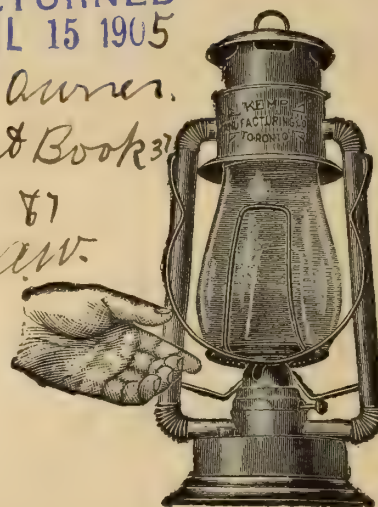 RETURNED
L 15 1905
Owner.
& Book 37
87
KEMP
MANUFACTURING CO
TORONTO